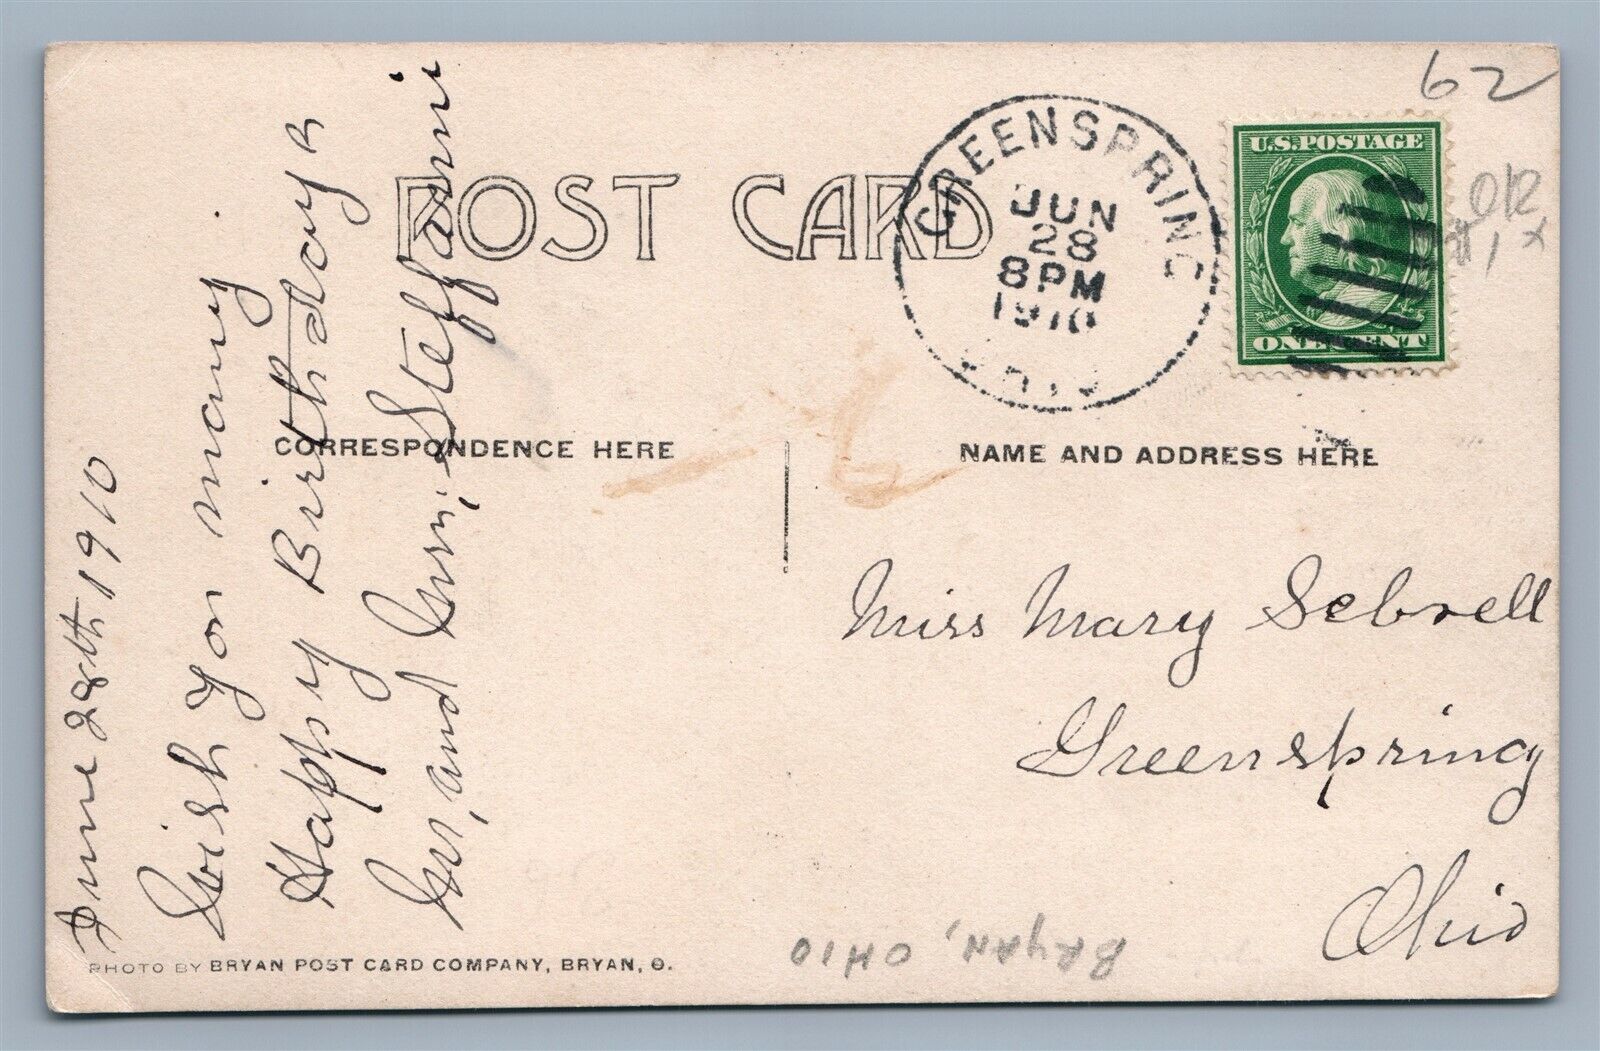 62
U.S.POSTAGE
ONE CENT
GREENSPRING
JUN
28
8PM
1910
OHIO
POST CARD
CORRESPONDENCE HERE
NAME AND ADDRESS HERE
June 28th 1910
Wish you many
Happy Birthdays
Mr, and Mrs, Steffani
Miss Mary Sebrell
Greenspring
Ohio
BRYAN, OHIO
PHOTO BY BRYAN POST CARD COMPANY, BRYAN, O.